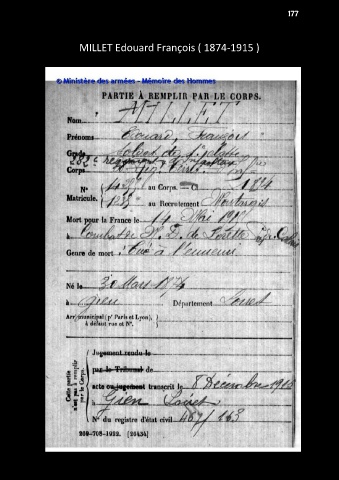 177
MILLET Edouard François ( 1874-1915 )
© Ministère des armées - Mémoire des Hommes
PARTIE À REMPLIR PAR LE CORPS.
Nom MILLET
Prénoms Edouard, François
Grade Soldat de 2e classe
282e régiment d'Infanterie
Corps
N° au Corps. 1894
Matricule. au Recrutement Montargis
Mort pour la France le 14 Mai 1915
à Combat de N. D. de Lorette
Genre de mort Tué à l'ennemi
Né le 30 Mars 1874
à Gien Département Loiret
Arr. municipal (pr Paris et Lyon),
à défaut rue et N°.
Cette partie
n'est pas à remplir
par le Corps.
Jugement rendu le
par le Tribunal de
acte ou jugement transcrit le 8 Décembre 1915
à Gien Loiret
N° du registre d'état civil 467/163
209-708-1922. [26434]